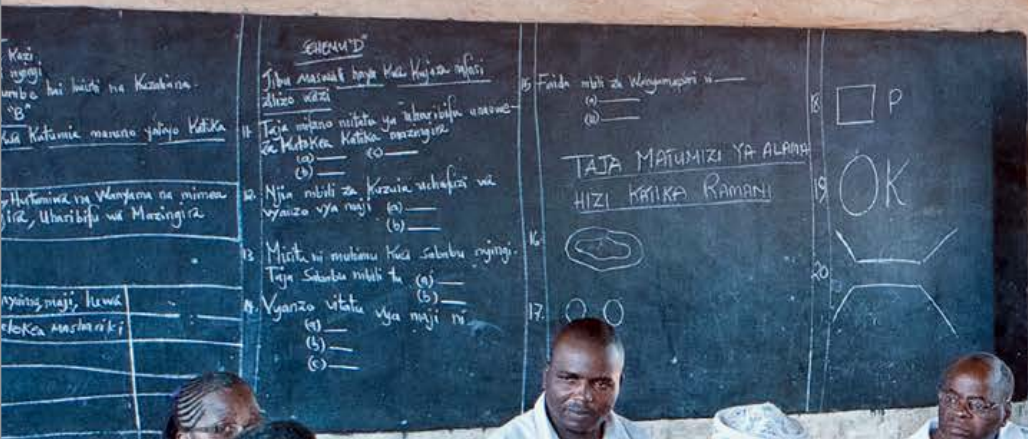 Kazi
nyingi
hai huishi na Kuzaliana.
"B"
kwa Kutumia maneno yafuyo Katika
Hutumiwa na Wanyama na mimea
Uharibifu wa Mazingira
maji, kuwa
mashariki
SEHEMU "D"
Jibu maswali haya kwa Kujaza nafasi
zilizo wazi
11. Taja mifano mitatu ya uharibifu
za Kutokea Katika mazingira
(a) ___ (c) ___
(b) ___
12. Njia mbili za Kuzuia uchafuzi wa
vyanzo vya maji (a) ___
(b) ___
13 Misitu ni muhimu Kwa Sababu nyingi.
Taja Sababu mbili tu (a) ___
(b) ___
14. Vyanzo vitatu vya maji ni
(a) ___
(b) ___
(c) ___
15 Faida mbili za Wanyamapori ni ___
(a) ___
(b) ___
TAJA MATUMIZI YA ALAMA
HIZI KATIKA RAMANI
16.
17.
18 P
19 K
20